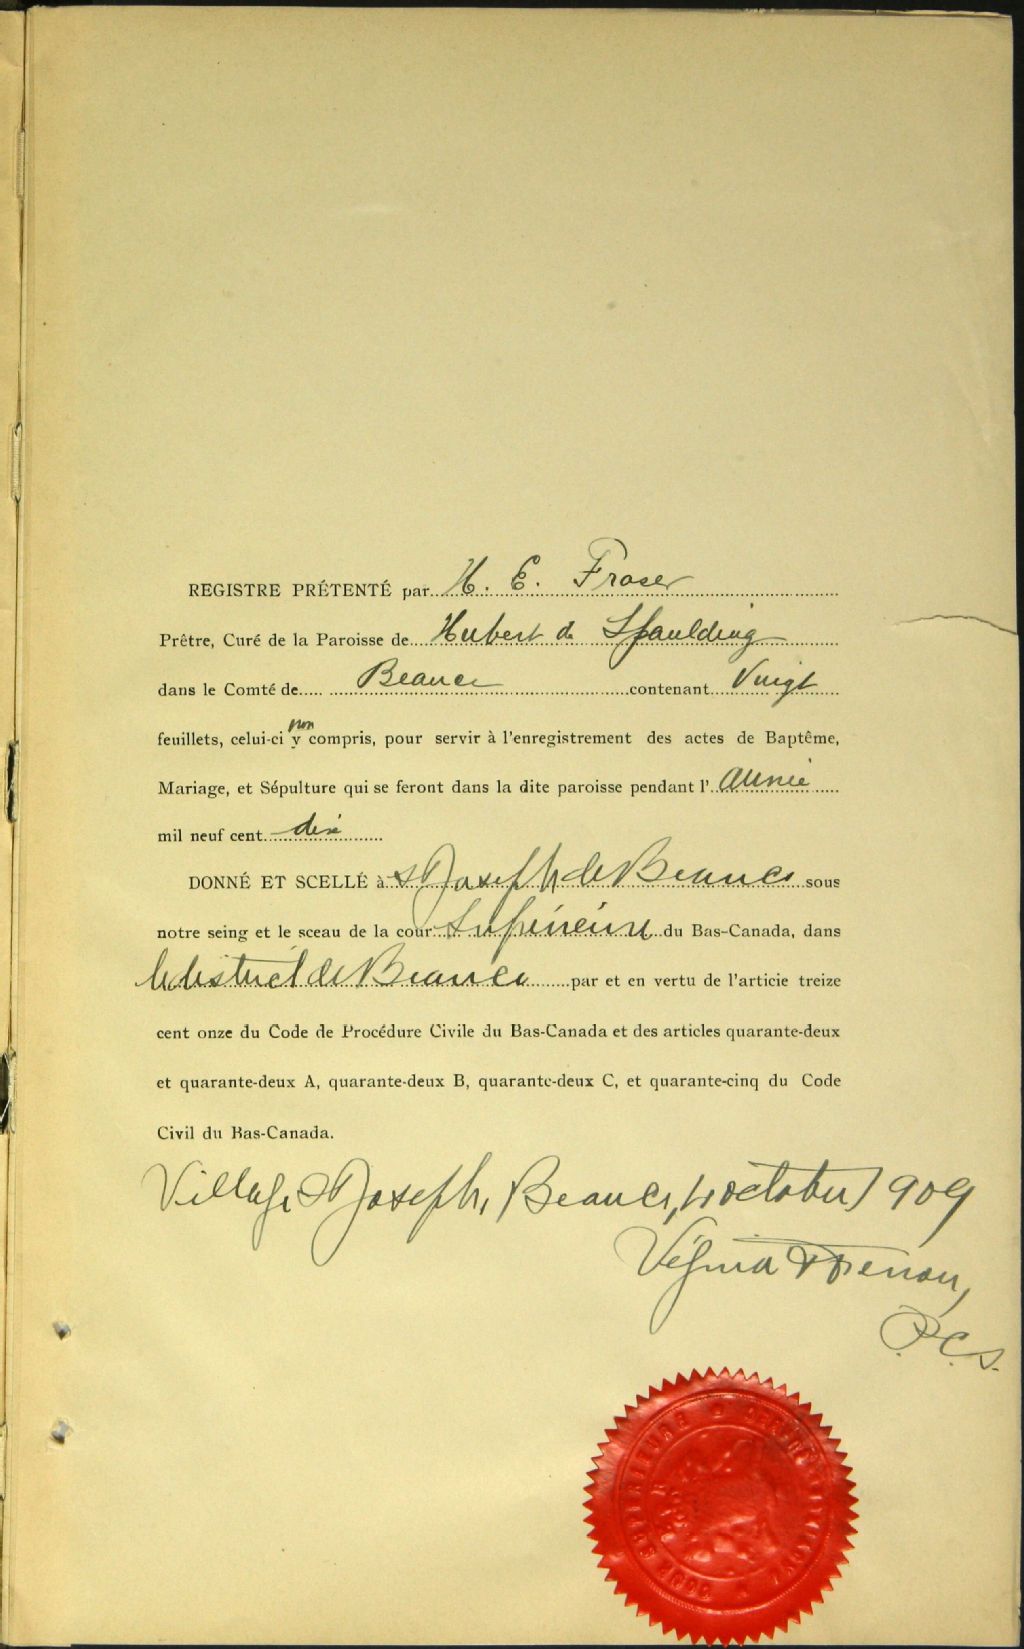 REGISTRE PRÉTENTÉ par H. E. Fraser
Prêtre, Curé de la Paroisse de Hubert de Spaulding
dans le Comté de Beauce contenant Vingt
non
feuillets, celui-ci y compris, pour servir à l'enregistrement des actes de Baptême,
Mariage, et Sépulture qui se feront dans la dite paroisse pendant l' année
mil neuf cent dix
DONNÉ ET SCELLÉ à St Joseph de Beauce sous
notre seing et le sceau de la cour Supérieure du Bas-Canada, dans
le district de Beauce par et en vertu de l'articie treize
cent onze du Code de Procédure Civile du Bas-Canada et des articles quarante-deux
et quarante-deux A, quarante-deux B, quarante-deux C, et quarante-cinq du Code
Civil du Bas-Canada.
Village St Joseph, Beauce, octobre 1909
P.C.S.
COUR SUPERIEURE